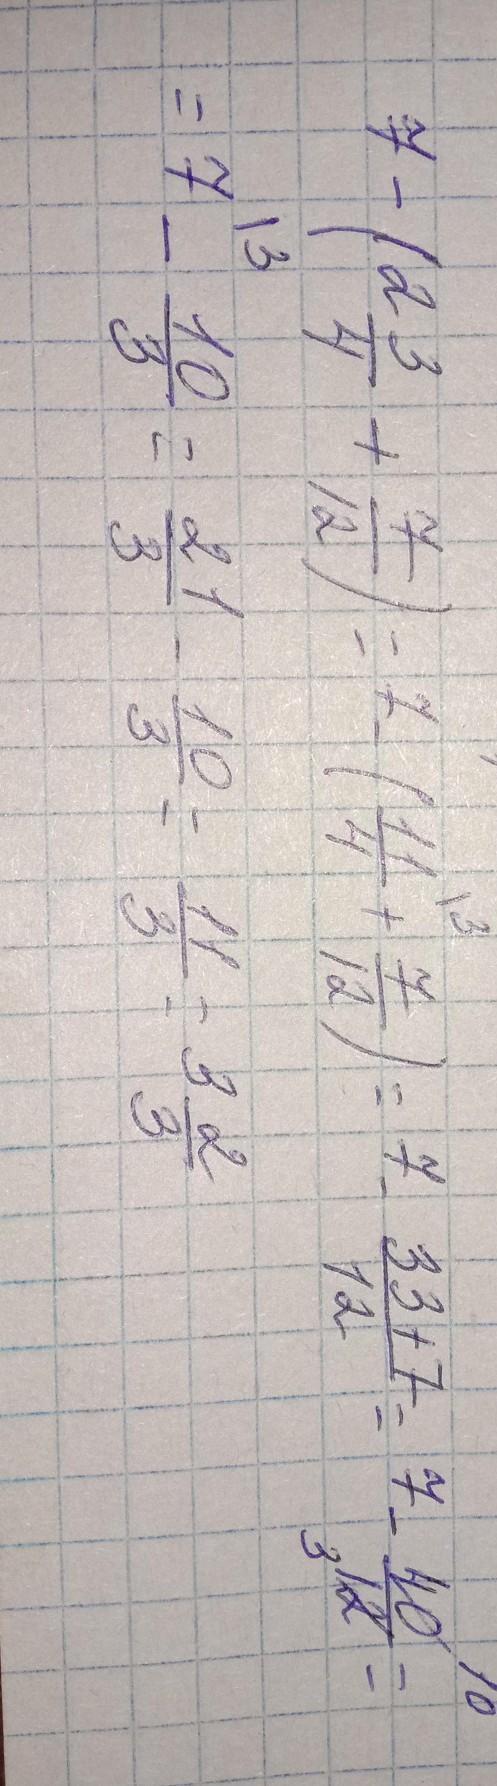 7 - (2 3/4 + 7/12) = 7 - (11/4 \3 + 7/12) = 7 - 33+7/12 = 7 - 40 10/12 3 =
= 7 \3 - 10/3 = 21/3 - 10/3 = 11/3 = 3 2/3